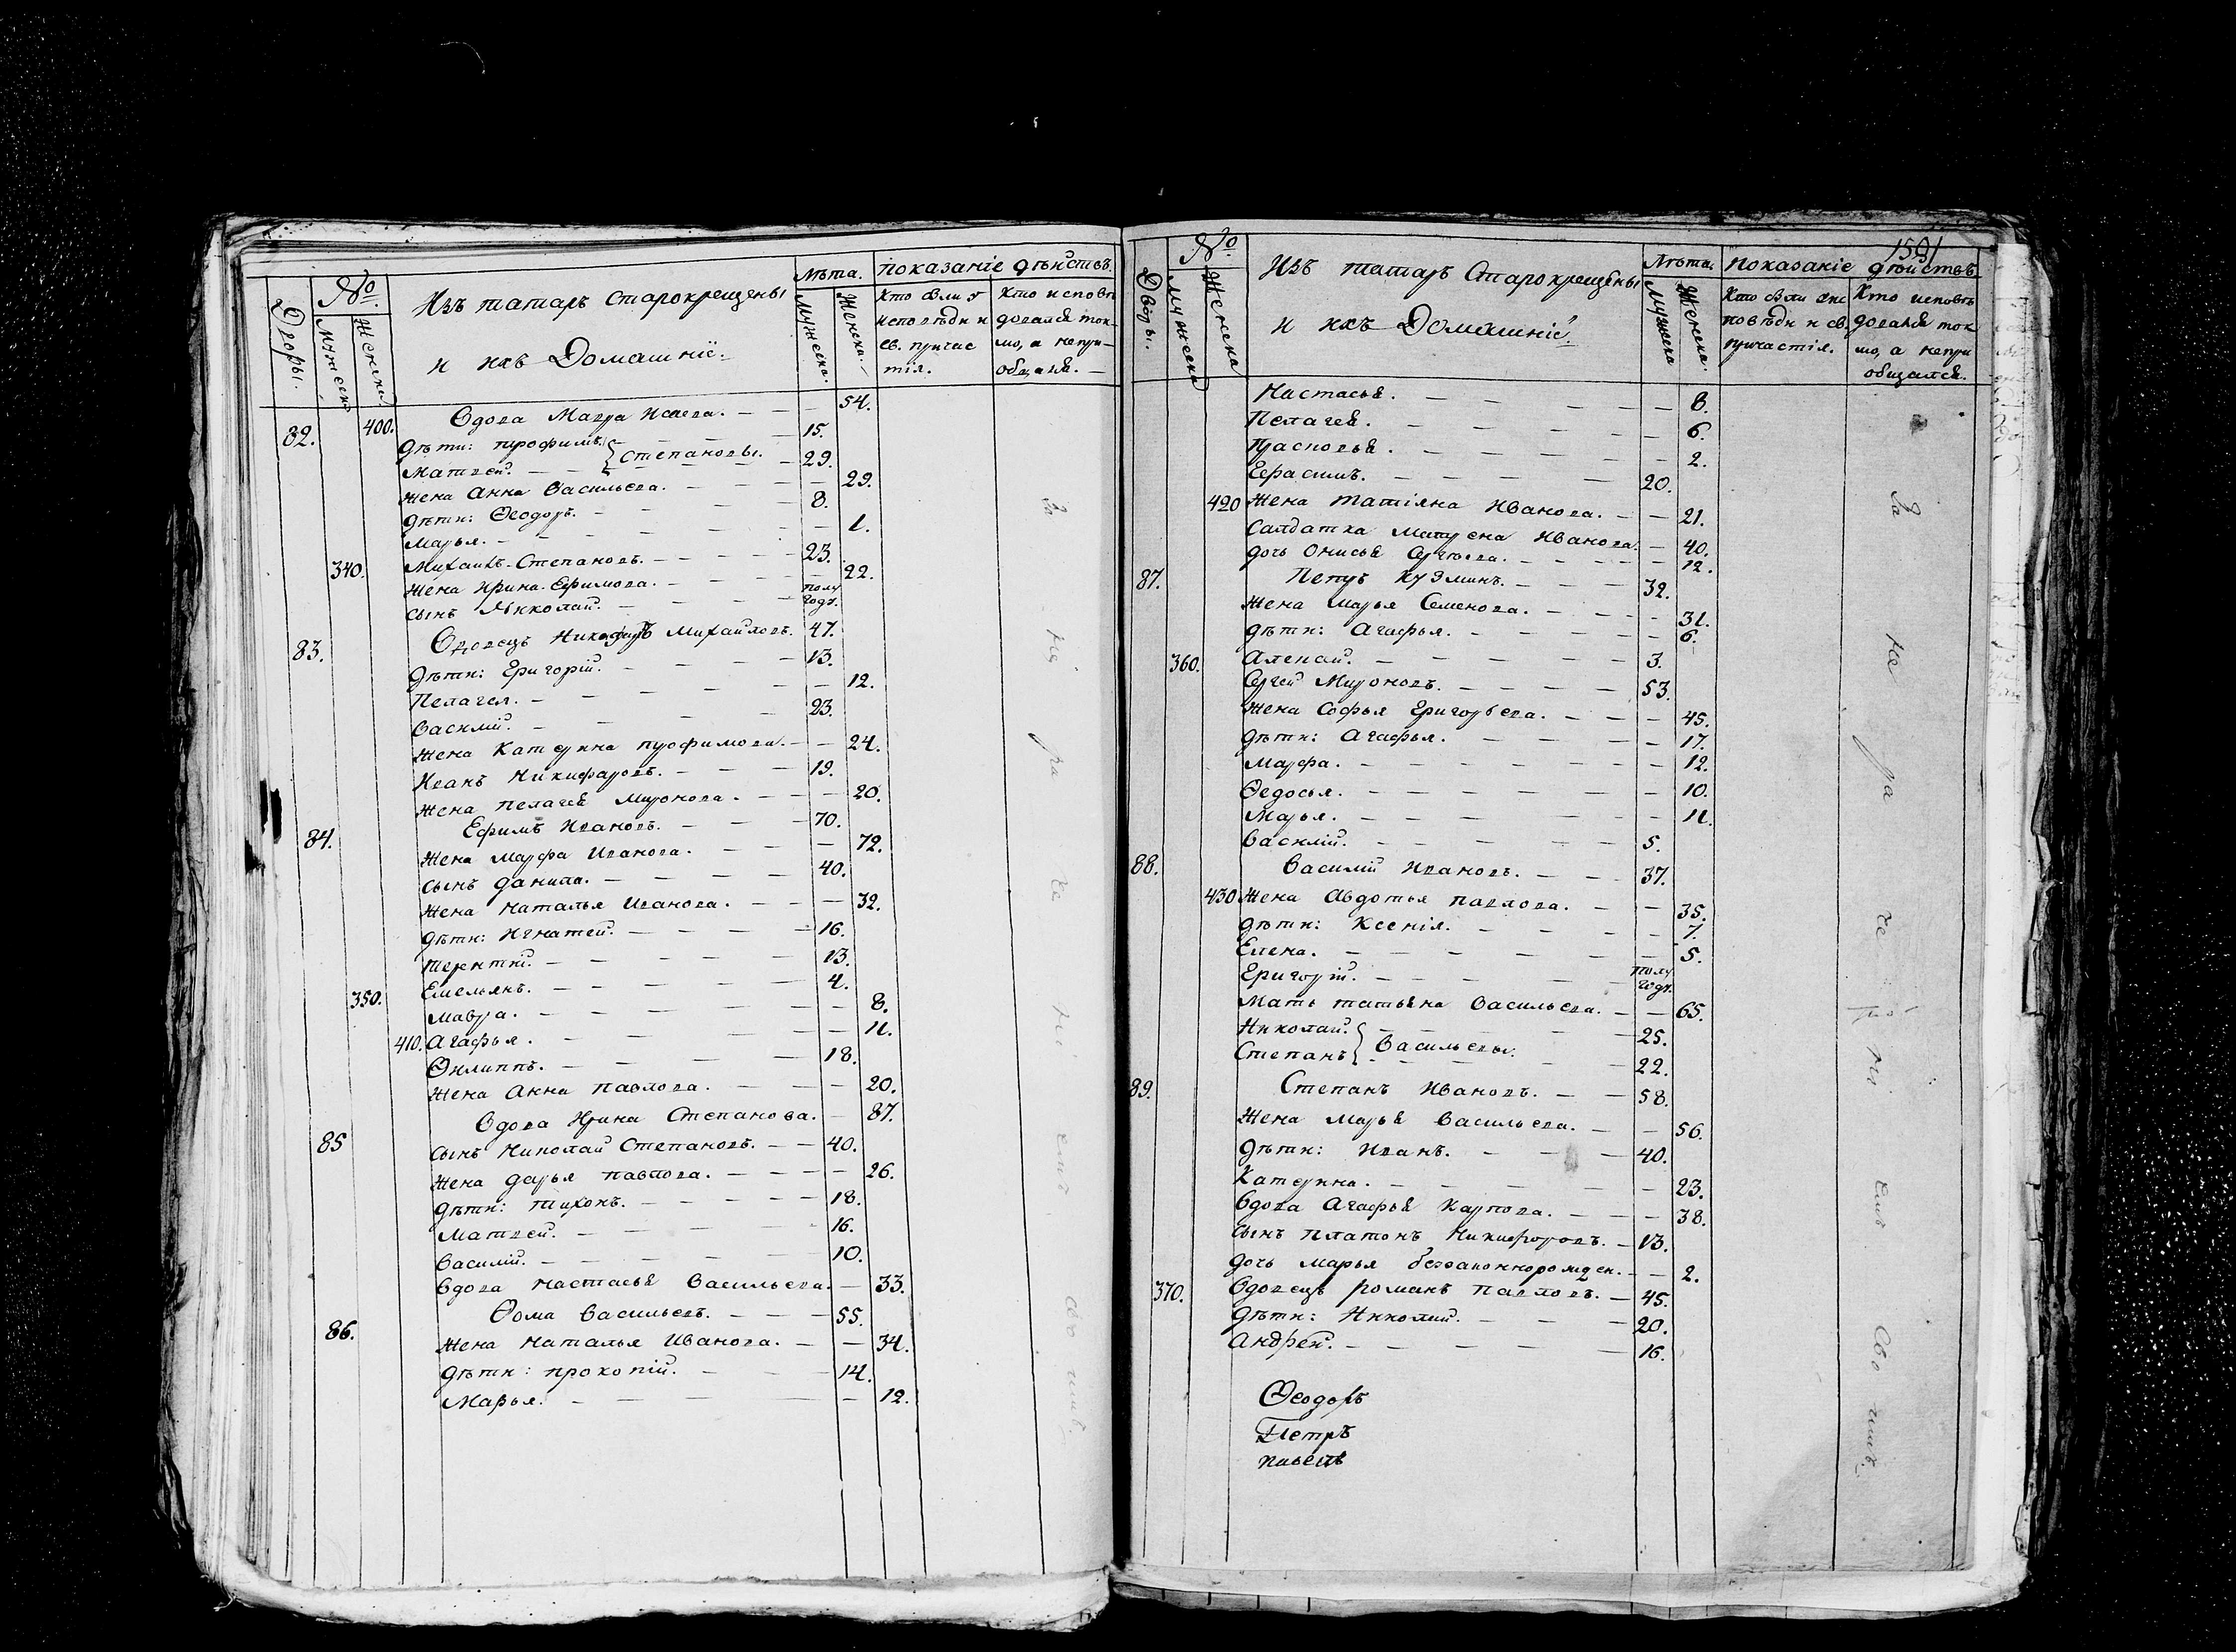 №
Лѣта.
показаніе дѣйствъ.
Дворы.
Мужеск
Женски
Изъ татаръ старокрещены
и ихъ Домашніе.
Мужеска.
Женска.
Кто были у
исповѣди и
св. причас
тія.
Кто исповѣ
довался ток-
мо, а непри-
общался.
82. 400. Вдова Мавра Исаева. 54.
дѣти: трофимъ. 15.
Степановы.
Матвей. 29.
жена Анна Васильева. 29.
дѣти: Ѳеодоръ. 8.
Марья. 1.
340. Михаилъ Степановъ. 23.
жена Ирина Ефимова. 22.
сынъ Николай. полу годъ.
83. Вдовецъ Никифоръ Михайловъ. 47.
дѣти: Григорій. 13.
Пелагея. 12.
Василій. 23.
жена Катерина трофимова. 24.
Иванъ Никифаровъ. 19.
жена пелагеѣ Миронова. 20.
84. Ефимъ Ивановъ. 70.
жена марфа Иванова. 72.
сынъ данила. 40.
жена наталья Иванова. 32.
дѣти: Игнатей. 16.
терентій. 13.
350. Емельянъ. 4.
мавра. 8.
410. Агафья. 11.
Филиппъ. 18.
жена Анна павлова. 20.
85 Вдова Ирина Степанова. 87.
сынъ Николай Степановъ. 40.
жена дарья павлова. 26.
дѣти: тихонъ. 18.
Матвей. 16.
Василій. 10.
вдова настасьѣ Васильева. 33.
86. Ѳома Васильевъ. 55.
жена наталья Иванова. 34.
дѣти: прокопій. 14.
Марья. 12.
1591
№
Лѣта.
показаніе дѣйствъ
Дворы.
Мужеска
Женска
Изъ татаръ Старокрещены
и ихъ Домашніе.
Мужеска
Женска.
Кто были ис
повѣди и св.
причастія.
Кто исповѣ
довался ток
мо, а непри
общался.
Настасьѣ. 8.
Пелагеѣ. 6.
Прасковьѣ. 2.
Герасимъ. 20.
420 жена татіяна Иванова. 21.
Салдатка Матрена Иванова. 40.
дочь Онисьѣ Сергѣева. 12.
87. Петръ Кузминъ. 32.
жена марья Семенова. 31.
дѣти: Агафья. 6.
360. Алексѣй. 3.
Сергей Мироновъ. 53.
жена Софья Григорьева. 45.
дѣти: Агафья. 17.
Марфа. 12.
Ѳедосья. 10.
Марья. 11.
Василій. 5.
88. Василій Ивановъ. 37.
430 жена Авдотья павлова. 35.
дѣти: Ксенія. 7.
Елена. 5.
Григорій. полу годъ.
мать татьѣна Васильева. 65.
Николай. 25.
Васильевы.
Степанъ 22.
89. Степанъ Ивановъ. 58.
жена марьѣ Васильева. 56.
дѣти: Иванъ. 40.
Катерина. 23.
вдова Агафьѣ Карпова. 38.
сынъ платонъ Никифоровъ. 13.
дочь марья беззаконнорожден. 2.
370. Вдовецъ романъ павловъ. 45.
дѣти: Николай. 20.
Андрей. 16.
Ѳеодоръ
Петръ
павелъ